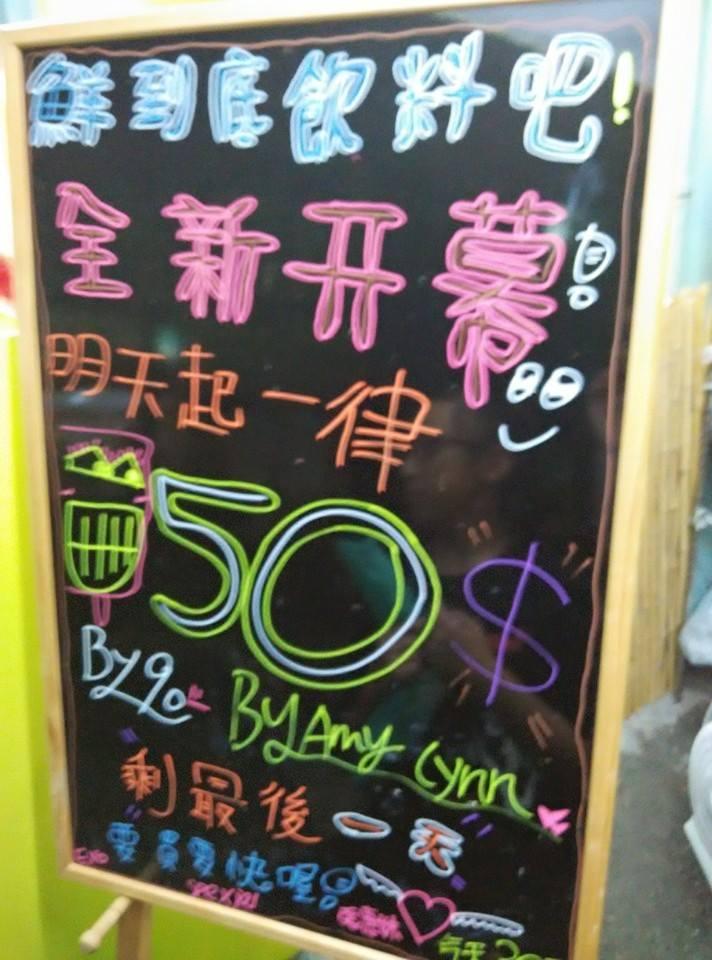 鮮到底飲料吧!
全新開幕!
明天起一律
50$
By 90
By Amy Lynn
剩最後一天
要買要快喔!